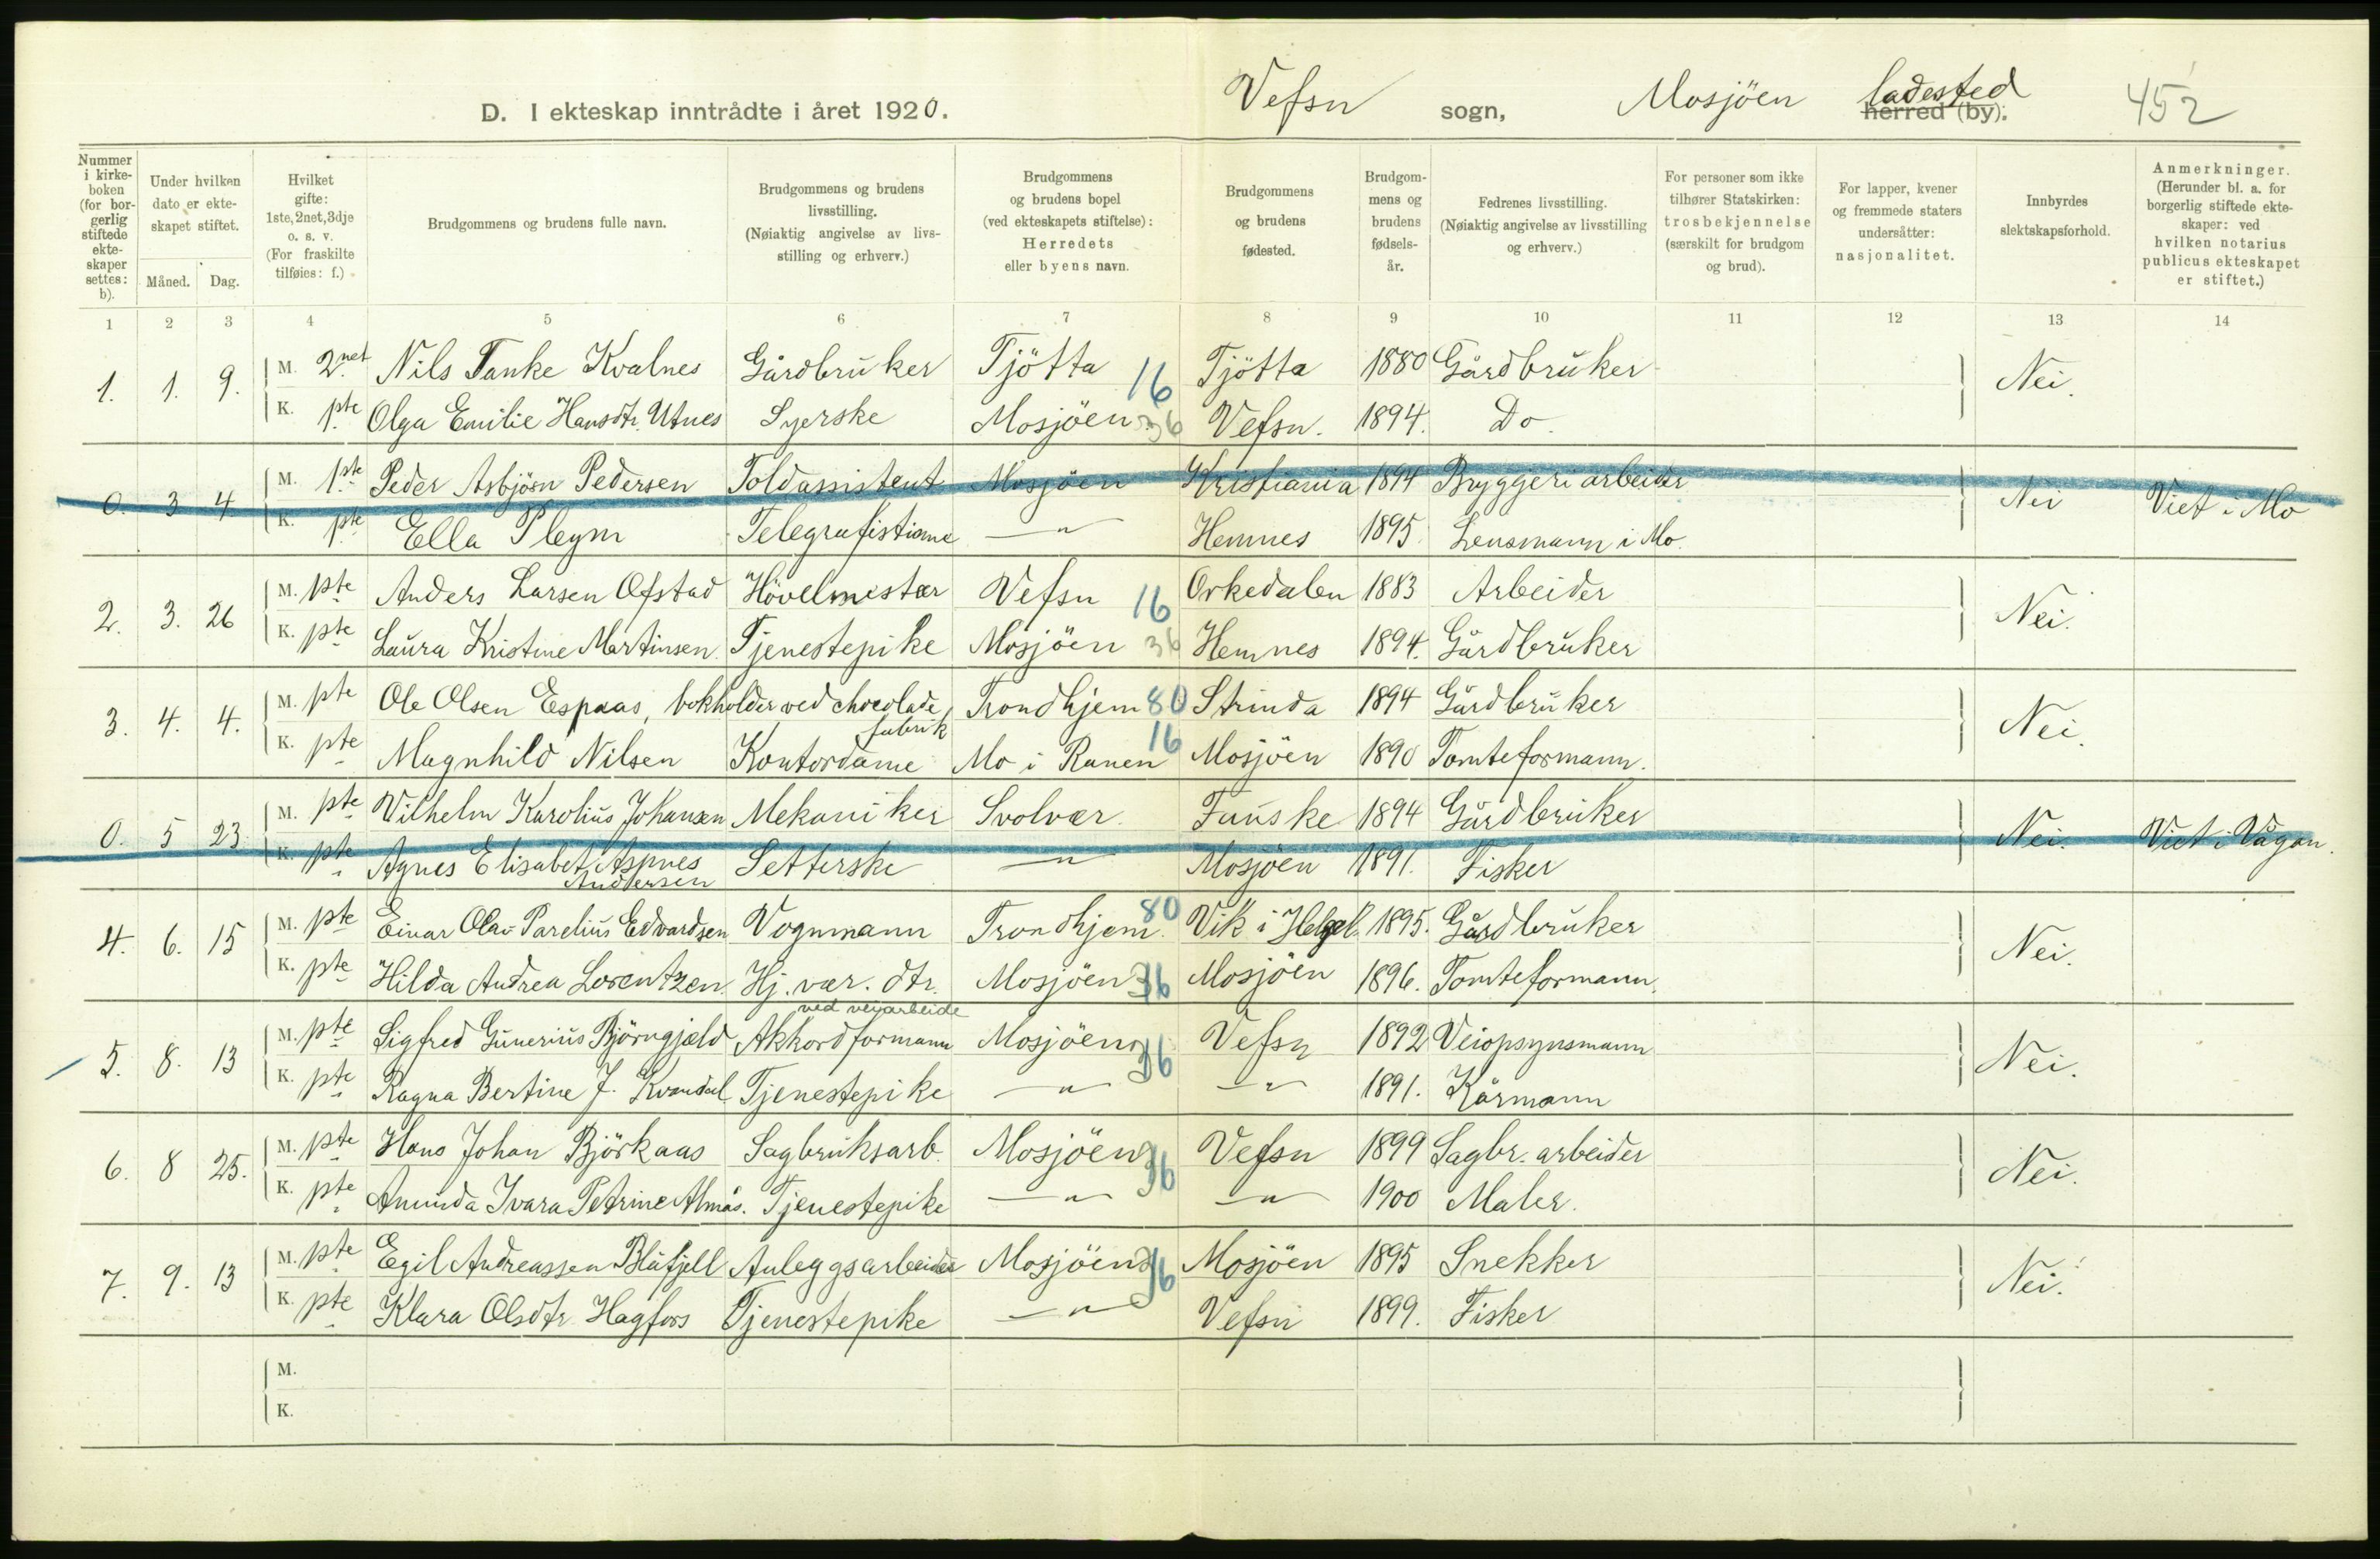 Vefsn sogn, Mosjöen ladested herred (by). 452
D. I ekteskap inntrådte i året 1920.
Nummer i kirke-boken (for bor-gerlig stiftede ekte-skaper settes: b).
Under hvilken dato er ekte-skapet stiftet.
Måned. Dag.
Hvilket gifte: 1ste, 2net, 3dje o. s. v. (For fraskilte tilføies: f.)
Brudgommens og brudens fulle navn.
Brudgommens og brudens livsstilling. (Nøiaktig angivelse av livs-stilling og erhverv.)
Brudgommens og brudens bopel (ved ekteskapets stiftelse): Herredets eller byens navn.
Brudgommens og brudens fødested.
Brudgom-mens og brudens fødsels-år.
Fedrenes livsstilling. (Nøiaktig angivelse av livsstilling og erhverv.)
For personer som ikke tilhører Statskirken: trosbekjennelse (særskilt for brudgom og brud).
For lapper, kvener og fremmede staters undersåtter: nasjonalitet.
Innbyrdes slektskapsforhold.
Anmerkninger. (Herunder bl. a. for borgerlig stiftede ekte-skaper: ved hvilken notarius publicus ekteskapet er stiftet.)
1 2 3 4 5 6 7 8 9 10 11 12 13 14
1. 1. 9. M. 2net Nils Tanke Kvalnes Gårdbruker Tjötta 16 Tjötta 1880 Gårdbruker Nei.
K. 1pte Olga Emilie Hansdtr. Utnes Syerske Mosjöen 36 Vefsn. 1894. Do.
0. 3 4 M. 1ste Peder Asbjörn Pedersen Toldassistent Mosjöen Kristiania 1894 Bryggeriarbeider Nei Viet i Mo
K. pte Ella Pleym Telegrafistinne —"— Hemnes 1895. Lensmann i Mo.
2. 3. 26 M. pte Anders Larsen Ofstad Hövelmester Vefsn 16 Orkedalen 1883 Arbeider Nei.
K. pte Laura Kristine Martinsen. Tjenestepike Mosjöen 36 Hemnes 1894. Gårdbruker
3. 4. 4. M. pte Ole Olsen Espaas, bokholder ved chocolade fabrik Trondhjem 80 Strinda 1894 Gårdbruker Nei.
K. pte Magnhild Nilsen Kontordame Mo i Ranen 16 Mosjöen 1890 Tomteformann.
0. 5 23 M. pte Vilhelm Karolius Johansen Mekaniker Svolvær. Fauske 1894 Gårdbruker Nei. Viet i Vågan.
K. pte Agnes Elisabet Aspnes Andersen Setterske —"— Mosjöen 1891. Fisker
4. 6. 15 M. pte Einar Olav Parelius Edvardsen Vognmann Trondhjem. 80 Vik i Helgel. 1895. Gårdbruker Nei.
K. pte Hilda Andrea Lorentzen. Hj. vær. dtr. Mosjöen 36 Mosjöen 1896. Tomteformann.
5. 8. 13 M. pte Sigfred Gunerius Björngjeld Akkordformann ved veiarbeide Mosjöen 36 Vefsn 1892 Veiopsynsmann Nei.
K. pte Ragna Bertine J. Kvandal Tjenestepike —"— —"— 1891. Kårmann
6. 8 25. M. pte Hans Johan Björkaas Sagbruksarb. Mosjöen 36 Vefsn 1899 Sagbr. arbeider Nei.
K. pte Amunda Ivara Petrine Almås. Tjenestepike —"— —"— 1900 Maler.
7. 9. 13 M. pte Egil Andreassen Blåfjell Anleggsarbeider Mosjöen 36 Mosjöen 1895 Snekker Nei.
K. pte Klara Olsdtr. Hagfors Tjenestepike —"— Vefsn 1899. Fisker
M.
K.